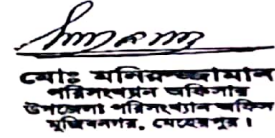 মোঃ মনিরুজ্জামান
পরিসংখ্যান অফিসার
উপজেলা পরিসংখ্যান অফিস
মুজিবনগর, মেহেরপুর।